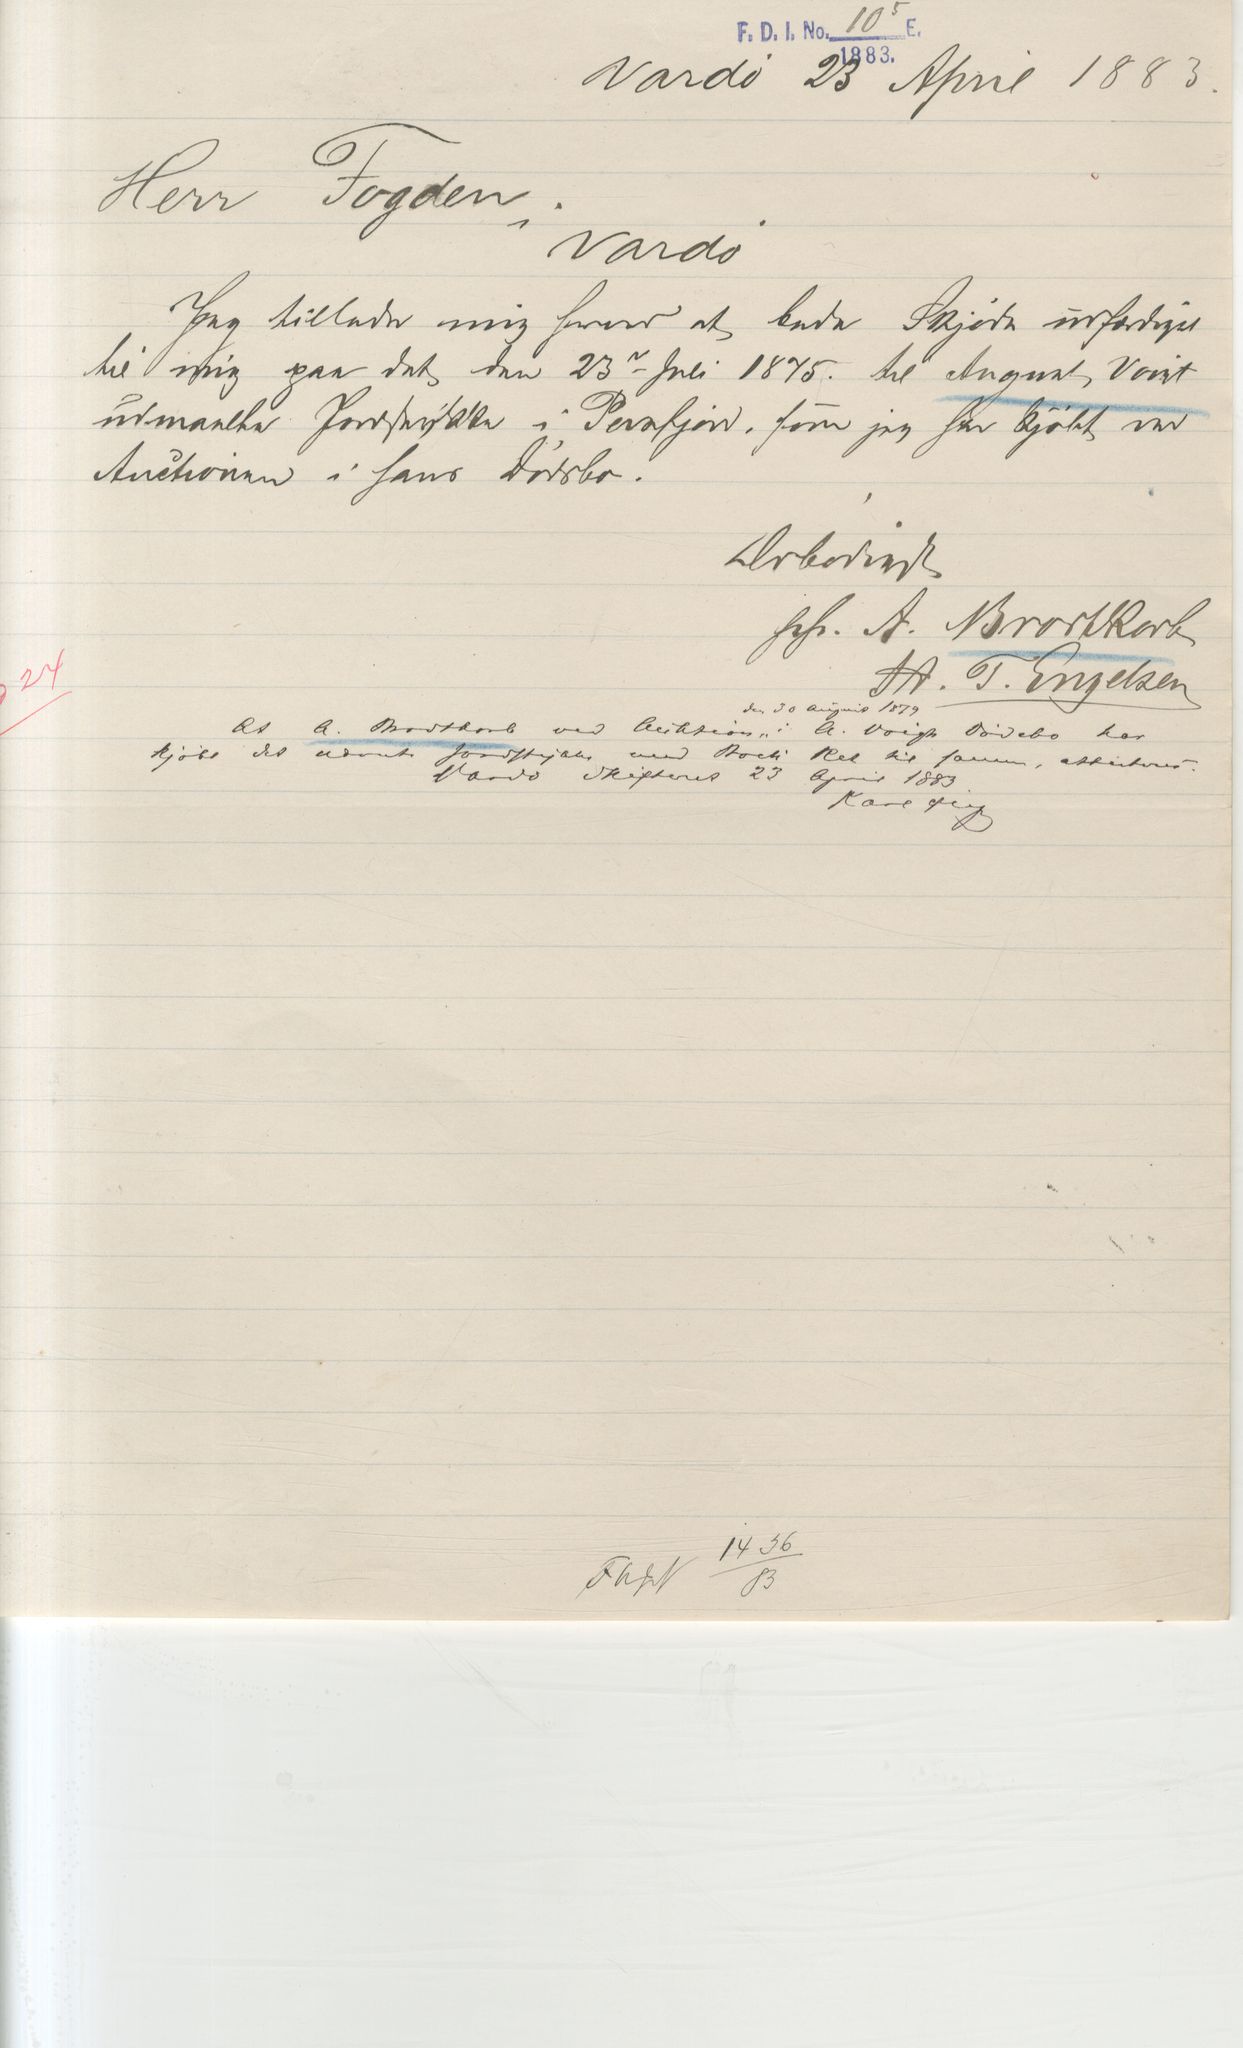 F. D. I. No. 10⁵ E.
1883.
Vardö 23 April 1883.
Herr Fogden i
Vardö
Jeg tillader mig herved at bede Skjöde udfærdiget
til mig paa det den 23ᵈᵉ Juli 1875 til August Voigt
udmaalte Jordstykke i Persfjord, som jeg har kjöbt ved
Auctionen i hans Dödsbo.
Ærbödigst
A. Brodtkorb
T. Engelsen
den 30 August 1879
At A. Brodtkorb ved Auktion i A. Voigts Dödsbo har
kjöbt det nævnte Jordstykke med Boets Ret til samme, attesteres.
Vardö Skifteret 23 April 1883
Karl
24
1436
83